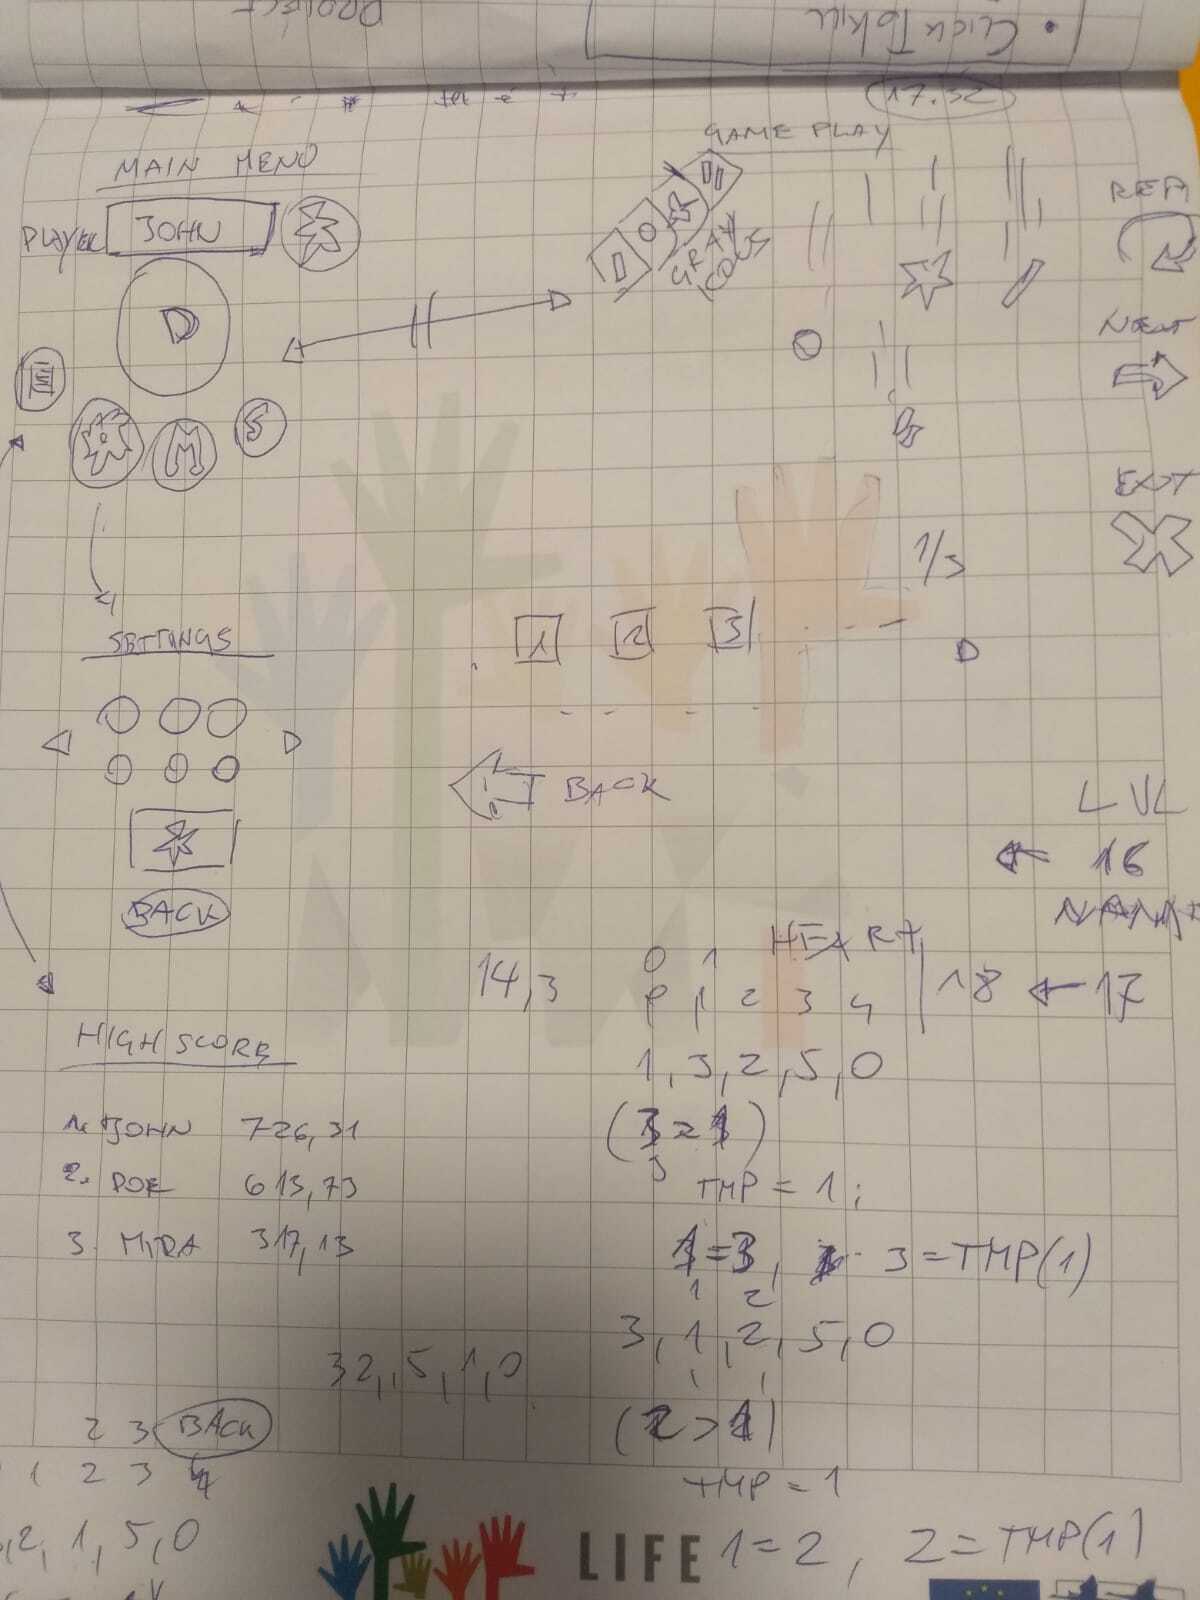 • CLICK TO KILL
PROJECT
17.32
GAME PLAY
MAIN MENU
PLAYER JOHN
GRAY
ICONS
NEXT
EXIT
M
S
1/3
SETTINGS
1 2 3
BACK
BACK
LVL
16
HEART
0 1
14,3
1 2 3 4
18 ← 17
HIGH SCORE
1, 3, 2, 5, 0
1. JOHN 726,31
2. DOE 613,73
3. MIRA 317,13
TMP = 1;
1=3, 3=TMP(1)
1 2
3, 1, 2, 5, 0
32, 5, 1, 0
(2>1)
2 3 BACK
1 2 3 4
TMP = 1
2, 1, 5, 0
LIFE
1=2, 2=TMP(1)